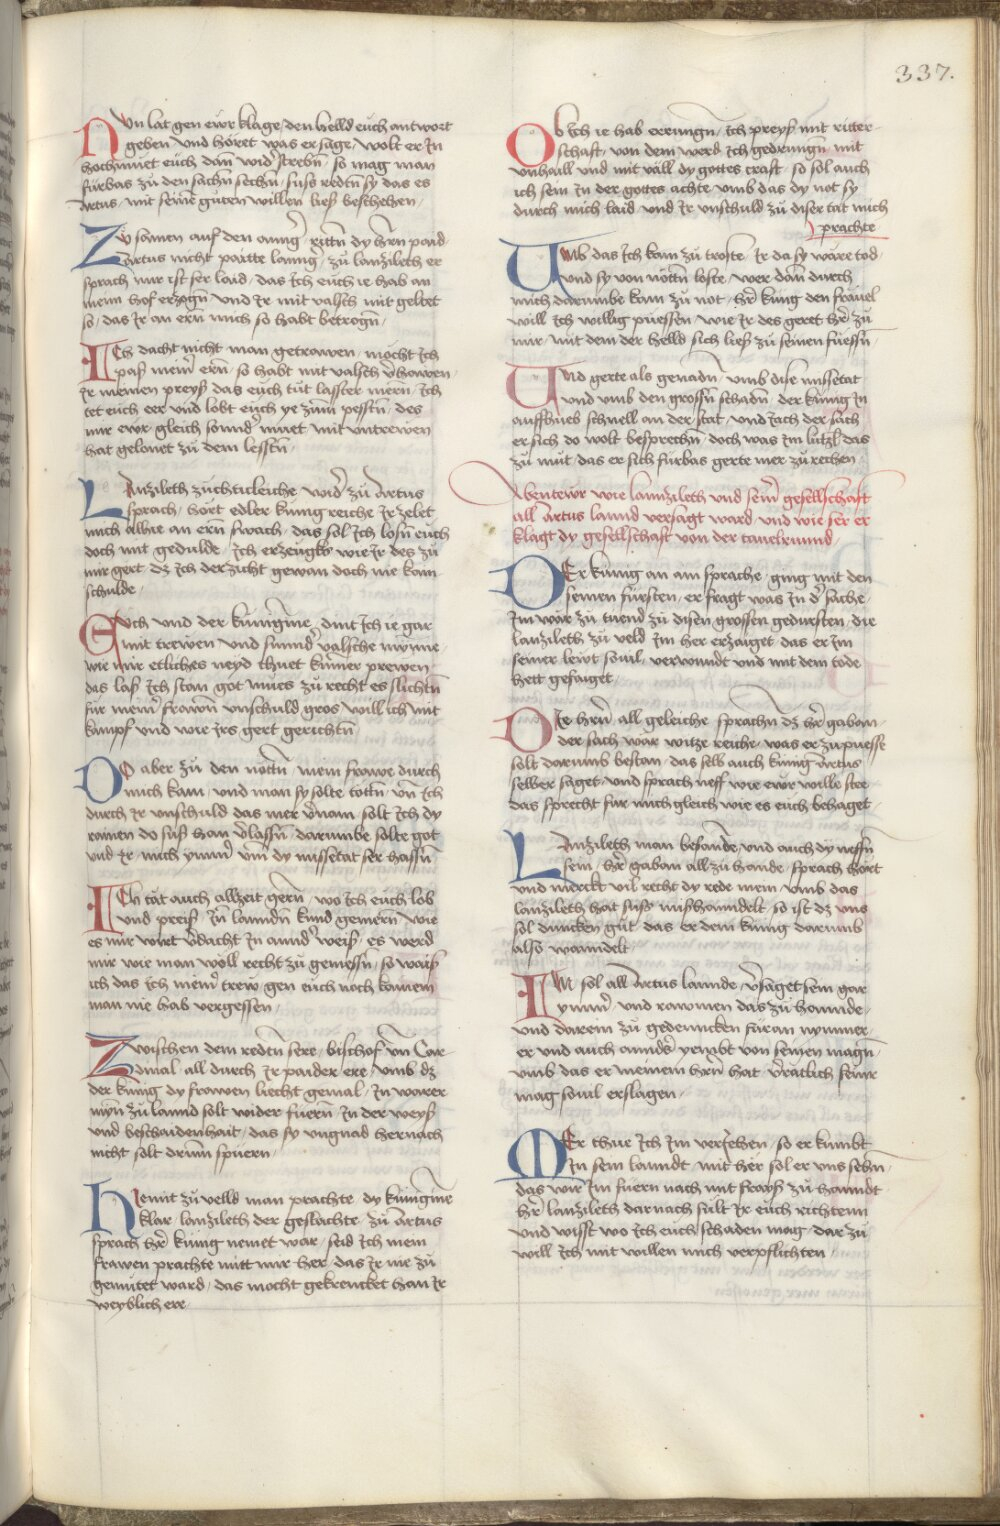 337.
Nun lat gen ewr klage, den helld euch antwort
geben vnd höret was er sage, wolt er in
hochmuet euch dann wider strebñ, so mag man
fürbas zu den sachñ sechñ, suss redtñ sy das es
Artus, mit seinē guten willen liess beschehen,
Zw samen auf den anng͛ rittñ dy hr̄n paid
Artus nicht partte lanng͛ zu lantzileth er
sprach mir ist ser laid, das ich euch ie hab an
meim hof erzogñ vnd ir mit valsch mit geltet
so, das ir an erñ mich so habt betrogñ,
Ich dacht nicht man getrawen, mocht ich
pass mein͛ erñ, so habt mit valsch v͛hawen
ir meinen preyss das euch tut lasster merñ, ich
tet euch eer vnd lobt euch ye zum pesstñ, des
mir ewr gleich sonnd͛ muet mit vntrewen
hat gelonet zu dem lesstñ
Lantzileth züchticleiche wid͛ zu Artus
sprach, hört edler kunig reiche ir zelet
mich allwe an erñ swach, das sol ich losñ euch
doch mit gedulde, ich erzeugks wie ir des zu
mir gert dz ich der zicht gewan doch nie kain
schulde,
Euch vnd der künigine, dint ich ie gar
mit trewen vnd sunnd͛ valsche mynne
wie mir etliches neyd thuet kumer prewen,
das lass ich stan got mues zu recht es slichtñ
für mein͛ frawñ vnschuld gros will ich mit
kampf vnd wie irs gert gerichtñ
Do aber zu den nöttñ mein frawe durch
mich kam, vnd man sy solte töttñ vñ ich
durch ir vnschuld das mer v͛nam solt ich dy
rainen do suss han v͛lassñ, darumbe solte got
vnd ir, mich ymm͛ vm̄ dy missetat ser hassñ
Ich tät auch allzeit gerñ, wo ich euch lob
vnd preiss in lanndñ kund gemerñ wie
es mir wirt v͛dacht in annd͛ weiss, es werd
mir wie man well recht zu gemessñ, so waiss
ich das ich mein͛ trew gen euch noch kainem
man nie hab vergessen,
Zwischen dem redtñ sere, bischof vñ Car-
dinal, all durch ir paider ere, vmb dz
der kunig dy frawen liecht gemal, in warer
myn zu lannd solt wider fuern in der weyss
vnd beschaidenhait, das sy vngnad hernach
nicht solt drinn spüern,
Hiemit zu velld man prachte dy kunigine
klar, lantzileth der geslachte zu Artus
sprach hr̄ kunig nemet war, seid ich mein
frawen prachte mitt mir her, das ir nie zu
gemütet ward, das mocht gekrencket han ir
weyblich ere,
Ob ich ie hab errungñ, ich preyss mit ritter-
schaft, von dem werd ich gedrungñ mit
vnhaill vnd mit väll dy gottes craft, so sol auch
ich sein in der gottes achte, vmb das dy not sy
durch mich laid, vnd ir vnschuld zu diser tat mich
prachte
Umb das ich kam zu troste, ir da sy wäre tod,
vnd sy von nöttñ löste, wer dañ durch
mich darumbe kam zu not, hr̄ kung den fräuel
will ich willig puessen, wie ir des geret hr̄ zu
mir, mit dem der helld sich liess zu seinen füessñ,
Und gerte als genadñ, vmb dise missetat
vnd vmb den grossñ schadñ, der kunig in
auffhueb schnell an der stat, vnd iach der sach
er sich do wolt besprechñ, doch was im lützl das
zu mut, das er sich fürbas gerte mer zu rechen,
Abentewr wie lanntzileth vnd sein͛ gesellschaft
all Artus lannd versagt ward, vnd wie ser er
klagt dy gesellschaft von der tauelrunnd,
Der kunig an ain sprache, ging mit den
seinen fürsten, er fragt was in d͛ sache,
im wär zu tuend zu disen grossen gedürsten, die
lantzileth zu veld im her erzaiget, das er im
seiner lewt souil, verwundt vnd mit dem tode
hett gesaiget,
Die hr̄n all geleiche sprachñ dz hr̄ gaban,
der sach wär witze reiche, was er zu puesse
solt darumb bestan, das selb auch kunig Artus
selber saget, vnd sprach neff wie ewr wille stee
das sprecht für mich gleich wie es euch behaget,
Lantzileth man besande, vnd auch dy nefñ
sein, hr̄ gaban all zu hande, sprach hört
vnd merckt vil recht dy rede mein, vmb das
lantzileth hat suss misshanndelt, so ist dz vns
sol duncken güt, das er dem kunig darumb
also wanndelt,
Im sol all Artus lannde, v͛saget sein gar
ymm͛, vnd rawmen das zu hannde,
vnd darein zu gedenncken füran nymmer,
er vnd auch annd͛s yembt von seinen magñ,
vmb das er meinem hr̄n hat v͛rätlich seiner
mag souil erslagen,
Mer thür ich im veriehen, so er kumbt
in sein lanndt, mit her sol er vns sehñ,
das wir im fuern nach mit frayss zu hanndt
hr̄ lantzileth darnach sült ir euch richtenn
vnd wisst wo ich euch schaden mag, dar zu
will ich mit willen mich verpflichten,